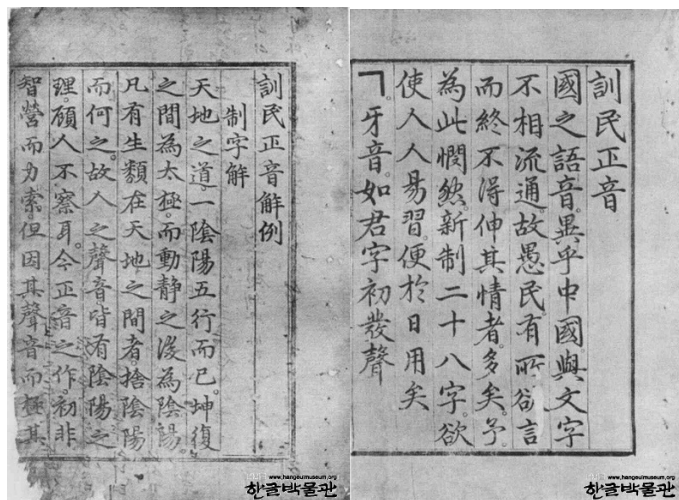 訓民正音
國之語音。異乎中國。與文字
不相流通。故愚民。有所欲言
而終不得伸其情者。多矣。予。
為此憫然。新制二十八字。欲
使人人易習。便於日用矣
ㄱ。牙音。如君字初發聲
www.hangeulmuseum.org
한글박물관
訓民正音解例
制字解
天地之道。一陰陽五行而已。坤復
之間為太極。而動静之後為陰陽。
凡有生類在天地之間者。捨陰陽
而何之。故人之聲音。皆有陰陽之
理。顧人不察耳。今正音之作。初非
智營而力索。但因其聲音而極其
www.hangeulmuseum.org
한글박물관